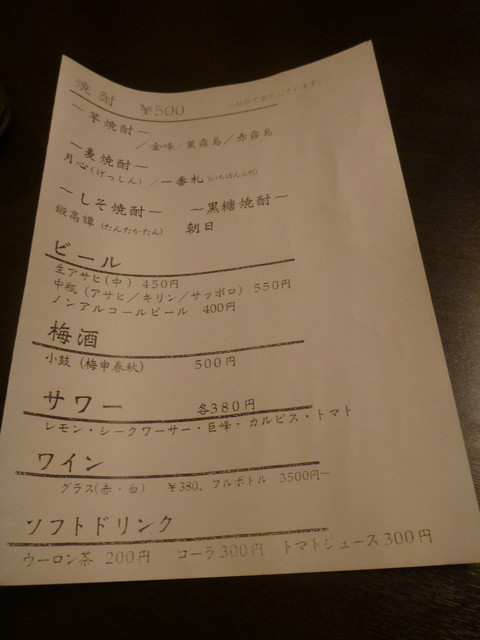 焼酎　￥500
～芋焼酎～
／金峰／黒霧島／赤霧島
～麦焼酎～
月心（げっしん）／一番札（いちばんふだ）
～しそ焼酎～　～黒糖焼酎～
鍛高譚（たんたかたん）　朝日
ビール
生アサヒ（中）450円
中瓶（アサヒ／キリン／サッポロ）550円
ノンアルコールビール　400円
梅酒
小鼓（梅申春秋）　500円
サワー　各380円
レモン・シークワーサー・巨峰・カルピス・トマト
ワイン
グラス（赤・白）　￥380、フルボトル　3500円～
ソフトドリンク
ウーロン茶　200円　コーラ300円　トマトジュース300円